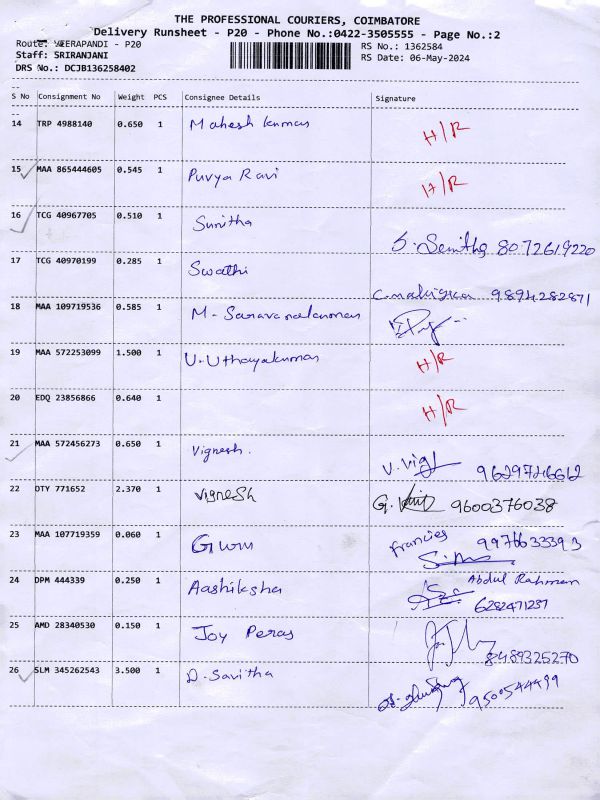 THE PROFESSIONAL COURIERS, COIMBATORE
Delivery Runsheet - P20 - Phone No.:0422-3505555 - Page No.:2
Route: VEERAPANDI - P20 RS No.: 1362584
Staff: SRIRANJANI RS Date: 06-May-2024
DRS No.: DCJB136258402
S No Consignment No Weight PCS Consignee Details Signature
14 TRP 4988140 0.650 1 Mahesh kumar H/R
15 MAA 865444605 0.545 1 Puvya Ravi H/R
16 TCG 40967705 0.510 1 Sunitha
S. 8072619220
17 TCG 40970199 0.285 1 Swathi
9894282871
18 MAA 109719536 0.585 1 M- Saravanakumar
19 MAA 572253099 1.500 1 U-Uthayakumar H/R
20 EDQ 23856866 0.640 1 H/R
21 MAA 572456273 0.650 1 Vignesh.
V. 9629726612
22 DTY 771652 2.370 1 VigneSh G. 9600376038
23 MAA 107719359 0.060 1 Francies 9976633393
24 DPM 444339 0.250 1 Aashiksha Abdul Rahman
6282471237
25 AMD 28340530 0.150 1 Joy Peras
8489325270
26 SLM 345262543 3.500 1 D.Savitha 9500544499